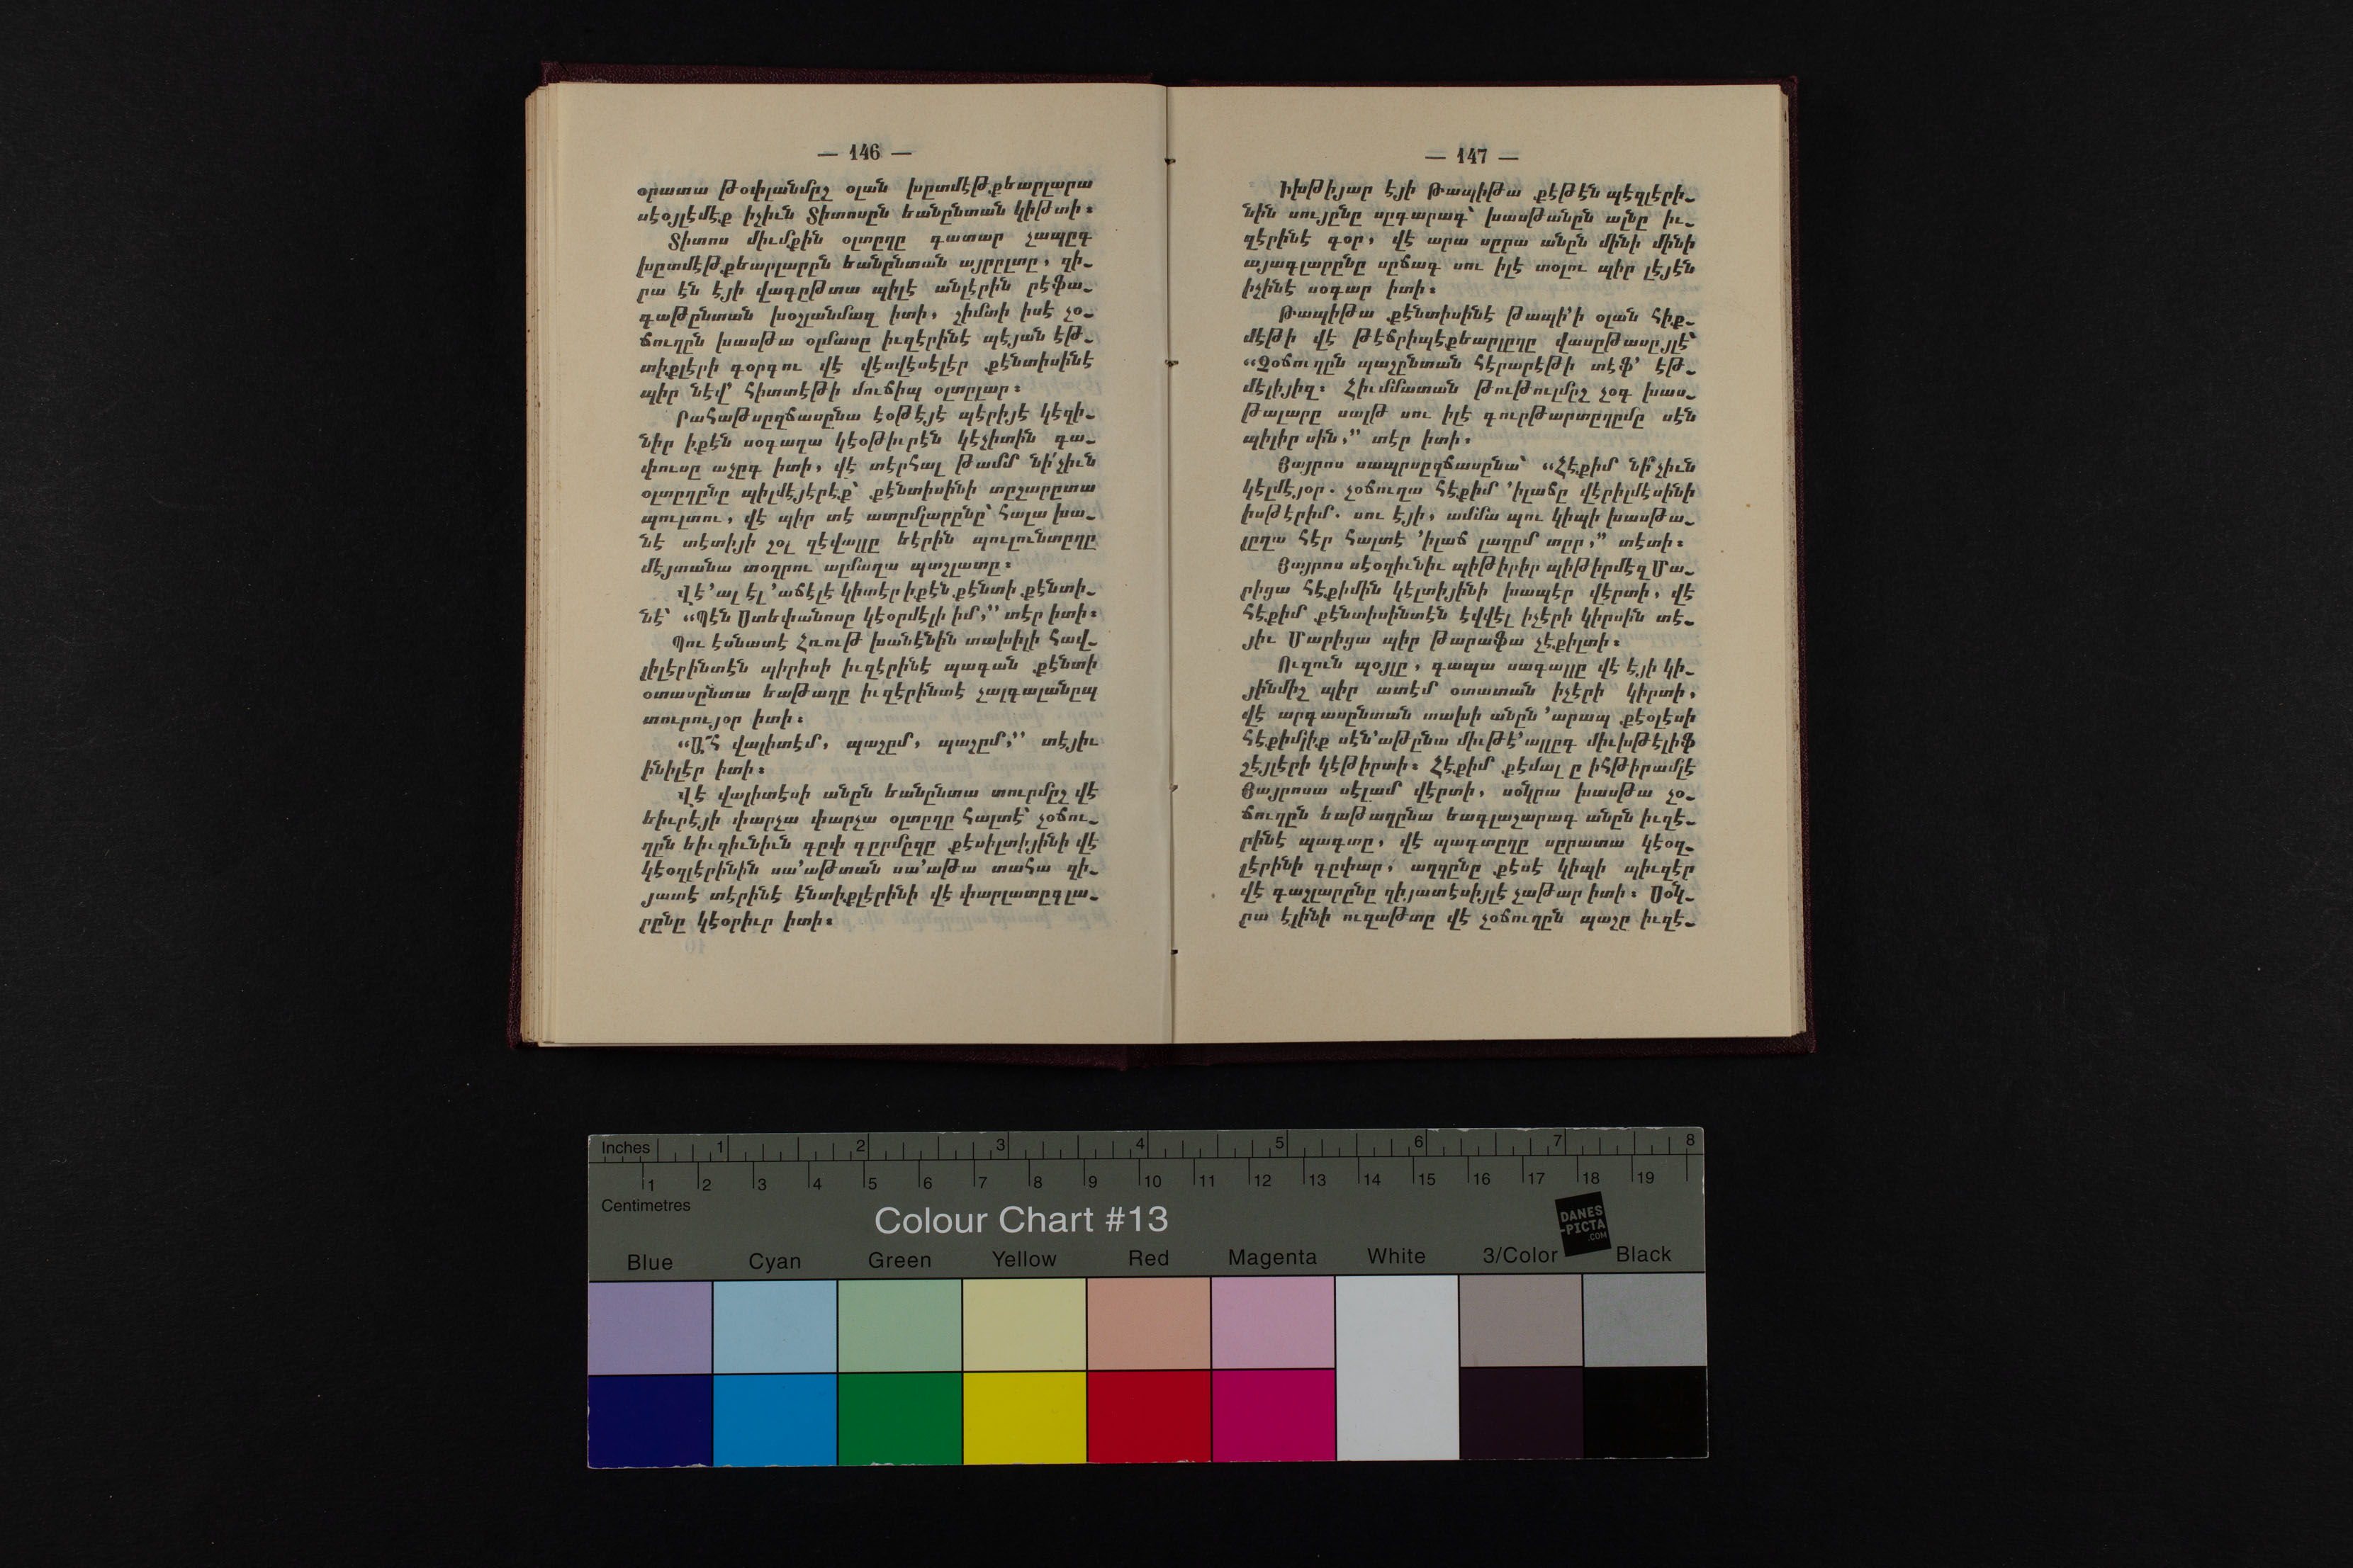 — 146 —
օրատա թօփլանմըշ օլան խըտմէթքեարլարա
սէօյլէմէք իչիւն Տիտոսըն եանընտան կիթտի։
Տիտոս միւմքին օլտըղը գատար չապըգ
խըտմէթքեարլարըն եանընտան այրըլտը, զի֊
րա էն էյի վագըթտա պիլէ անլէրին րէֆա֊
գաթընտան խօշլանմազ իտի, շիմտի իսէ չօ֊
ճուղըն խասթա օլմասը իւզէրինէ պէյան էթ֊
տիքլէրի գօրգու վէ վէսվէսէլէր քէնտիսինէ
պիր նէվ՚ հիտտէթի մուճիպ օլտըլար։
Րահաթսըզճասընա էօթէյէ պէրիյէ կէզի֊
նիր իքէն սօգաղա կէօթիւրէն կէչիտին գա֊
փուսը աչըգ իտի, վէ տէրհալ թամմ նի՛չիւն
օլտըղընը պիլմէյէրէք՝ քէնտիսինի տըշարըտա
պուլտու, վէ պիր տէ ատըմլարընը՝ հալա խա֊
նէ տէտիյի չօլ զէվալլը եէրին պուլունտըղը
մէյտանա տօղրու ալմաղա պաշլատը։
Վէ՚ալ էլ՚աճէլէ կիտէր իքէն քէնտի քէնտի֊
նէ՝ “Պէն Ստեփանոսը կէօրմէլի իմ,” տէր իտի։
Պու էսնատէ Հռութ խանէնին տախիլի հավ֊
լիլէրինտէն պիրիսի իւզէրինէ պագան քէնտի
օտասընտա եաթաղը իւզէրինտէ չալգալանըպ
տուրույօր իտի։
“Ա՜հ վալիտէմ, պաշըմ, պաշըմ,” տէյիւ
ինիլէր իտի։
Վէ վալիտէսի անըն եանընտա տուրմըշ վէ
եիւրէյի փարչա փարչա օլտըղը հալտէ՝ չօճու֊
ղըն եիւզիւնիւն գըփ գըրմըզը քէսիլտիյինի վէ
կէօզլէրինին սա՚աթտան սա՚աթա տահա զի֊
յատէ տէրինէ էնտիքլէրինի վէ փարլատըգլա֊
րընը կէօրիւր իտի։
— 147 —
Իխթիյար էյի Թապիթա քէթէն պէզլէրի֊
նին սույընը սըգարագ՝ խասթանըն ալնը իւ֊
զէրինէ գօր, վէ արա սըրա անըն մինի մինի
այագլարընը սըճագ սու իլէ տօլու պիր լէյէն
իչինէ սօգար իտի։
Թապիթա քէնտիսինէ թապի՚ի օլան հիք֊
մէթի վէ թէճրիպէքեարլըղը վասըթասըյլէ՝
“Չօճուղըն պաշընտան հէրարէթի տէֆ՚ էթ֊
մէլիյիզ։ Հիւմմատան թութուլմըշ չօգ խաս֊
թալարը սալթ սու իլէ գուրթարտըղըմը սէն
պիլիր սին,” տէր իտի,
Յայրոս սապըրսըզճասընա՝ “Հէքիմ նի՞չիւն
կէլմէյօր. չօճուղա հէքիմ ՚իլաճը վէրիլմէսինի
իսթէրիմ. սու էյի, ամմա պու կիպի խասթա֊
լըղա հէր հալտէ ՚իլաճ լազըմ տըր,” տէտի։
Յայրոս սէօզիւնիւ պիթիրիր պիթիրմէզ Մա֊
րիցա հէքիմին կէլտիյինի խապէր վէրտի, վէ
հէքիմ քէնտիսինտէն էվվէլ իչէրի կիրսին տէ֊
յիւ Մարիցա պիր թարաֆա չէքիլտի։
Ուզուն պօյլը, գապա սագալլը վէ էյի կի֊
յինմիշ պիր ատէմ օտատան իչէրի կիրտի,
վէ արգասընտան տախի անըն ՚արապ քէօլէսի
հէքիմլիք սէն՚աթընա միւթէ՚ալլըգ միւխթէլիֆ
շէյլէրի կէթիրտի։ Հէքիմ քէմալ ը իհթիրամլէ
Յայրոսա սէլամ վէրտի, սօնկրա խասթա չօ֊
ճուղըն եաթաղընա եագլաշարագ անըն իւզէ֊
րինէ պագտը, վէ պագտըղը սըրատա կէօզ֊
լէրինի գըփար, աղզընը քէսէ կիպի պիւզէր
վէ գաշլարընը զիյատէսիյլէ չաթար իտի։ Սօնկ֊
րա էլինի ուզաթտը վէ չօճուղըն պաշը իւզէ֊
Inches 1 2 3 4 5 6 7 8
1 2 3 4 5 6 7 8 9 10 11 12 13 14 15 16 17 18 19
Centimetres
Colour Chart #13
DANES
-PICTA
.COM
Blue Cyan Green Yellow Red Magenta White 3/Color Black